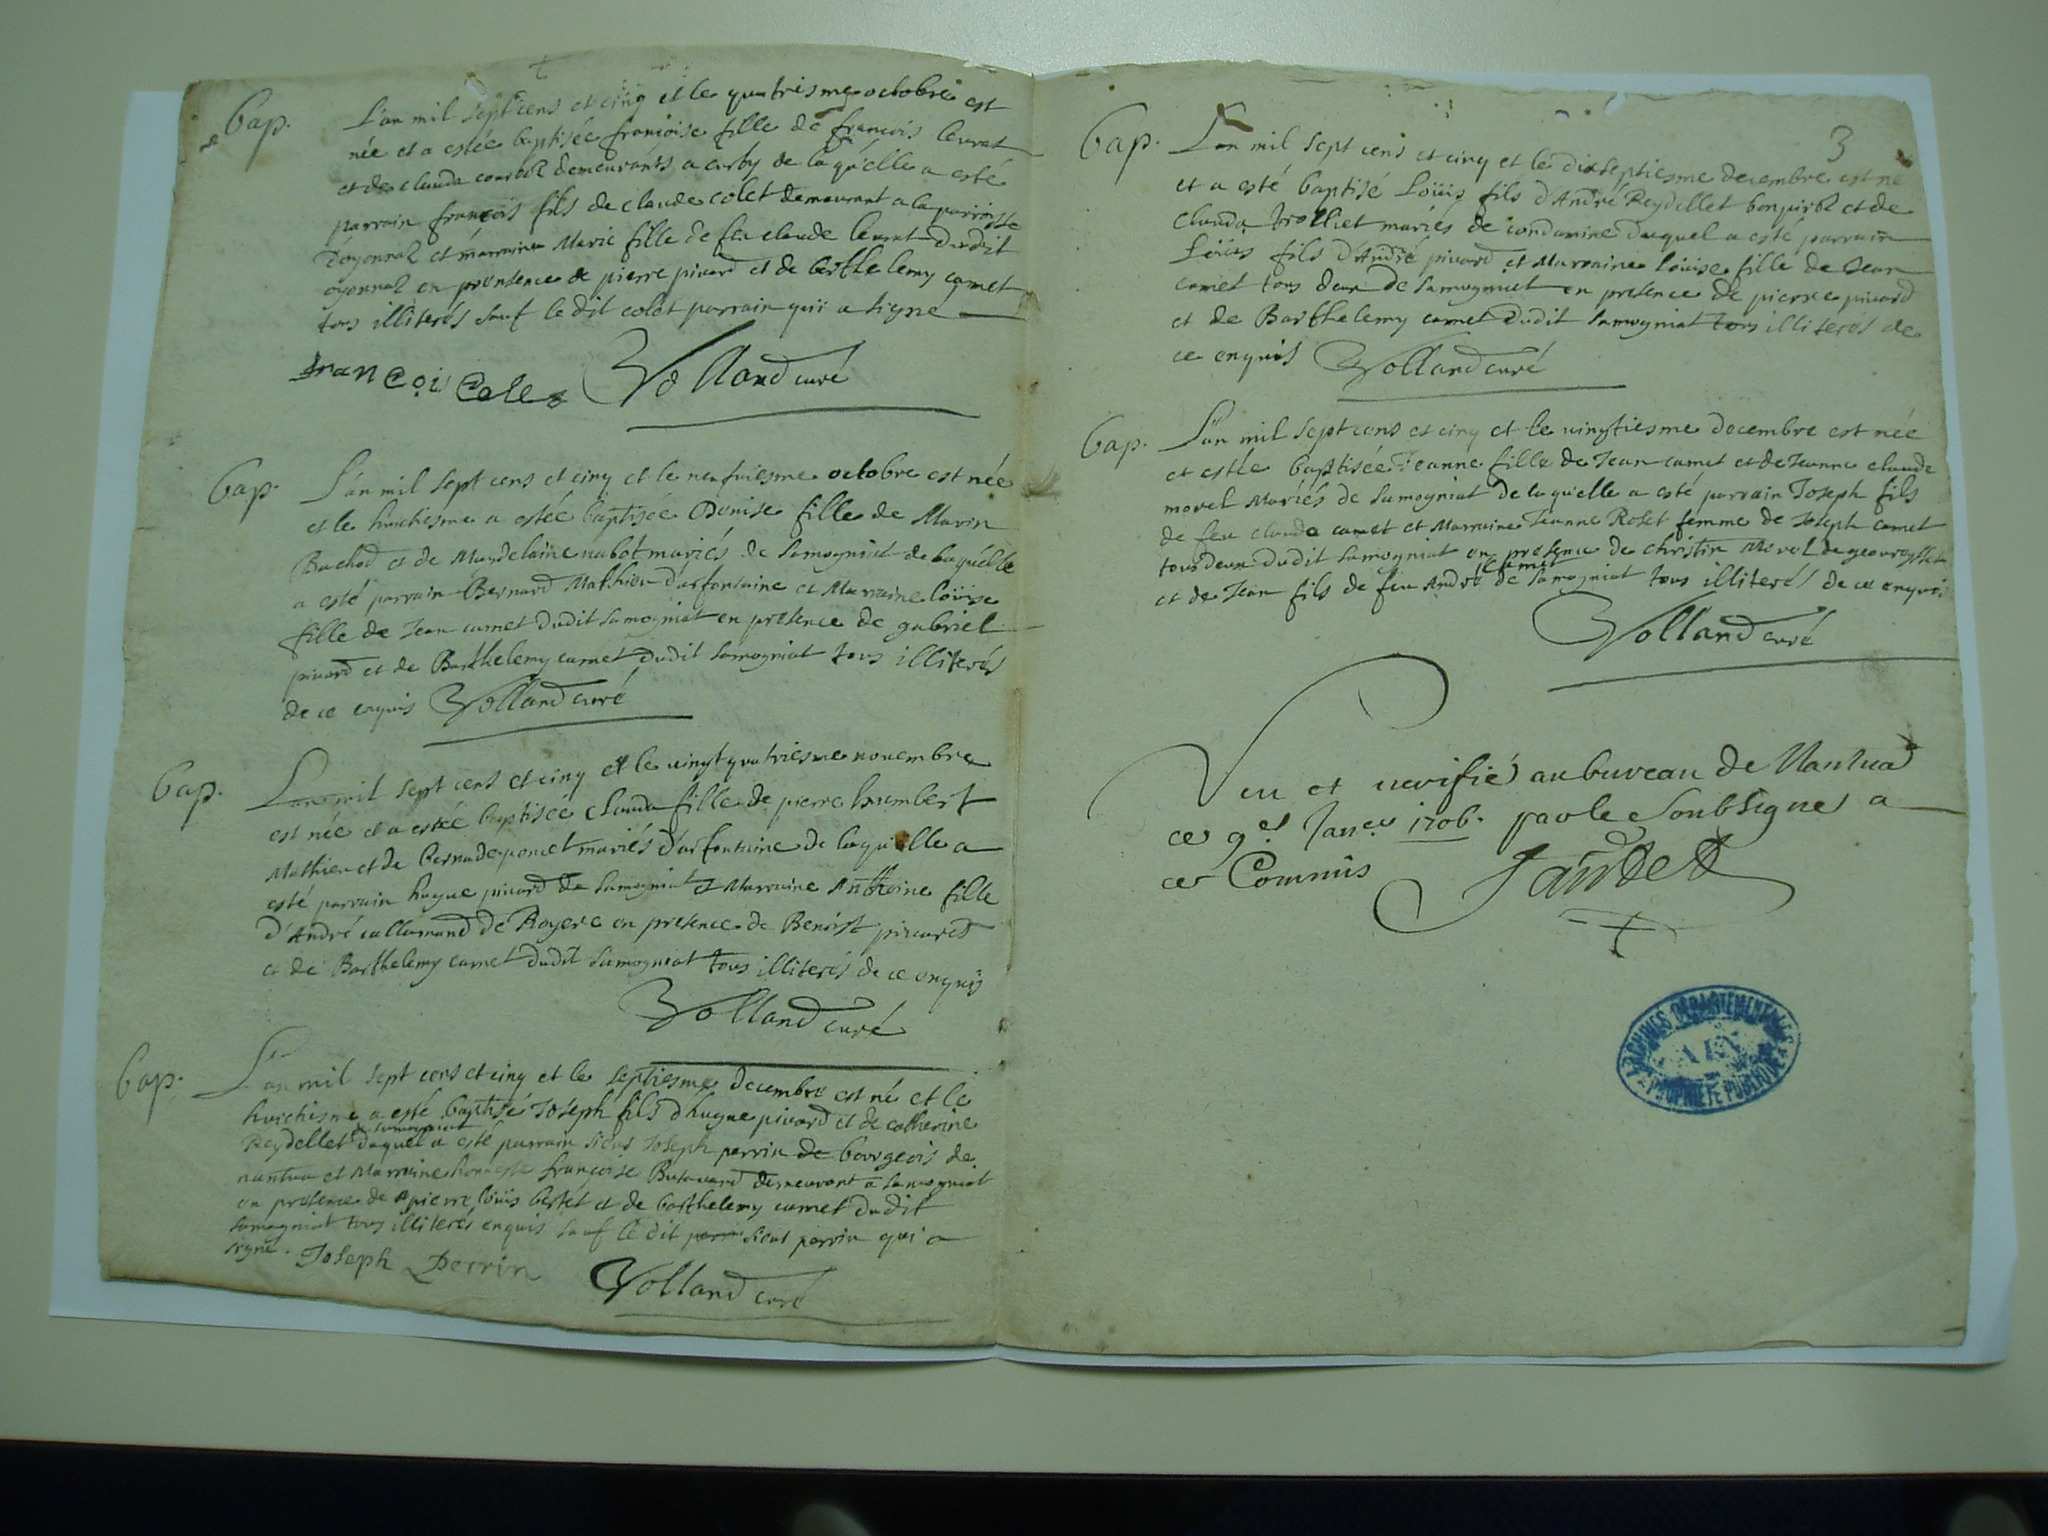 Bap. L'an mil sept cens et cinq et le quatriesme octobre est
née et a estée baptisée françoise fille de françois leuvat
et de clauda demeurants a de laquelle a esté
parrain françois fils de claude colet demeurant a la parroisse
d'oyonnaz et marraine Marie fille de feu claude dudit
oyonnaz en presence de pierre pivard et de berthelemy camet
tous illiterés sauf le dit colet parrain qui a signé
françois Colet Volland curé
Bap. L'an mil sept cens et cinq et le neufuiesme octobre est née
et le huictiesme a estée baptisée Denise fille de Marin
Bachod et de Magdelaine nabot mariés de samogniat de laquelle
a esté parrain Bernard Mathieu d'arfontaine et Marraine loüise
fille de Jean camet dudit samogniat en presence de gabriel
pivard et de Barthelemy camet dudit samogniat tous illiterés
de ce enquis Volland curé
Bap. L'an mil sept cens et cinq et le vingt quatriesme novembre
est née et a estée baptisée Clauda fille de pierre humbert
Mathieu et de Bernarde poncet mariés d'arfontaine de laquelle a
esté parrain hugue pivard de samogniat et Marraine Antheine fille
d'André callamand de Royere en presence de Benoist pivard
et de Barthelemy camet dudit samogniat tous illiterés de ce enquis
Volland curé
Bap. L'an mil sept cens et cinq et le septiesme decembre est né et le
huictiesme a esté baptisé Joseph fils d'hugue pivard et de catherine
de samogniat
Reydellet duquel a esté parrain sieur Joseph perrin de bourgeois de
nantua et Marraine honneste françoise demeurant a samogniat
en presence de pierre loüis bertet et de barthelemy camet dudit
samogniat tous illiterés enquis sauf le dit perrin sieur perrin qui a
signé. Joseph Perrin Volland curé
3
Bap. L'an mil sept cens et cinq et le dixseptiesme decembre est né
et a esté baptisé Loüis fils d'André Reydellet bonpierre et de
Clauda Jrolliet mariés de condamine duquel a esté parrain
Loüis fils d'André pivard et Marraine loüise fille de Jean
camet tous deux de samogniat en presence de pierre pivard
et de Barthelemy camet dudit samogniat tous illiterés de
ce enquis Volland curé
Bap. L'an mil sept cens et cinq et le vingtiesme decembre est née
et estée baptisée Jeanne fille de Jean camet et de Jeanne claude
morel Mariés de samogniat de laquelle a esté parrain Joseph fils
de feu claude camet et Marraine Jeanne Rolet femme de Joseph camet
tous deux dudit samogniat en presence de christin Morel de
camet
et de Jean fils de feu André de samogniat tous illiterés de ce enquis
Volland curé
Veu et verifié au bureau de Nantua
ce 9.e Janer 1706. par le Soubsigné a
ce Commis Jantet
ARCHIVES DÉPARTEMENTALES
AIN
PROPRIÉTÉ PUBLIQUE